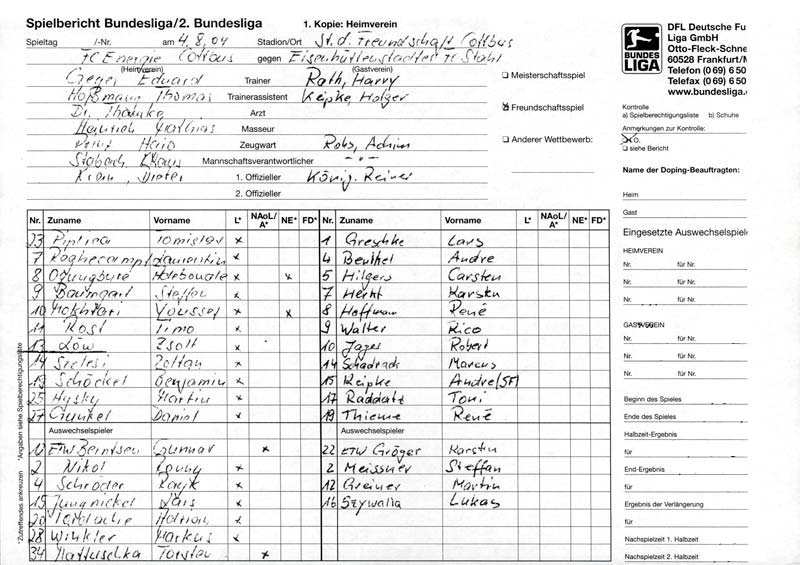 Spielbericht Bundesliga/2. Bundesliga 1. Kopie: Heimverein
Spieltag /-Nr. am 4.8.04 Stadion/Ort St. d. Freundschaft Cottbus
FC Energie Cottbus gegen Eisenhüttenstädter FC Stahl
(Heimverein) (Gastverein)
Geyer Eduard Trainer Rath, Harry
Hoßmann Thomas Trainerassistent Keipke, Holger
Dr. Arzt
Heinrich Masseur
Zeugwart Rohs, Achim
Klaus Mannschaftsverantwortlicher -"-
Dieter 1. Offizieller König, Reiner
2. Offizieller
Meisterschaftsspiel
Freundschaftsspiel
Anderer Wettbewerb:
BUNDES LIGA
DFL Deutsche Fu
Liga GmbH
Otto-Fleck-Schne
60528 Frankfurt/M
Telefon (0 69) 6 50
Telefax (0 69) 6 50
www.bundesliga.
Kontrolle
a) Spielberechtigungsliste b) Schuhe
Anmerkungen zur Kontrolle:
o.
siehe Bericht
Name der Doping-Beauftragten:
Heim
Gast
Eingesetzte Auswechselspiele
HEIMVEREIN
Nr. für Nr.
Nr. für Nr.
Nr. für Nr.
GASTVEREIN
Nr. für Nr.
Nr. für Nr.
Nr. für Nr.
Beginn des Spieles
Ende des Spieles
Halbzeit-Ergebnis
für
End-Ergebnis
für
Ergebnis der Verlängerung
für
Nachspielzeit 1. Halbzeit
Nachspielzeit 2. Halbzeit
Nr. Zuname Vorname L* NAoL/A* NE* FD* Nr. Zuname Vorname L* NAoL/A* NE* FD*
23 Piplica Tomislav x 1 Greschke Lars
7 Laurentiu x 4 Benthel Andre
8 x x 5 Hilgers Carsten
9 Baumgart Steffen x 7 Herht Karsten
10 Mokhtari Youssef x x 8 Hoffmann René
11 Rost Timo x 9 Walter Rico
13 Löw Zsolt x 10 Jages Robert
14 Szelesi Zoltan x 14 Schadrach Marcus
19 Schöckel Benjamin x 15 Keipke Andre (SF)
25 Hysky Martin x 17 Raddatz Toni
27 Gunkel Daniel x 19 Thieme René
Auswechselspieler Auswechselspieler
12 ETW Berntsen Gunnar x 22 ETW Gröger Karsten
2 Nikol Ronny x 2 Meissner Steffan
4 Schröder Rayk x 12 Greiner Martin
15 Jungnickel Lars x 16 Szywalla Lukas
20 x
28 Winkler Markus x
34 Mattuschka Torsten x
*Zutreffendes ankreuzen *Angaben siehe Spielberechtigungsliste